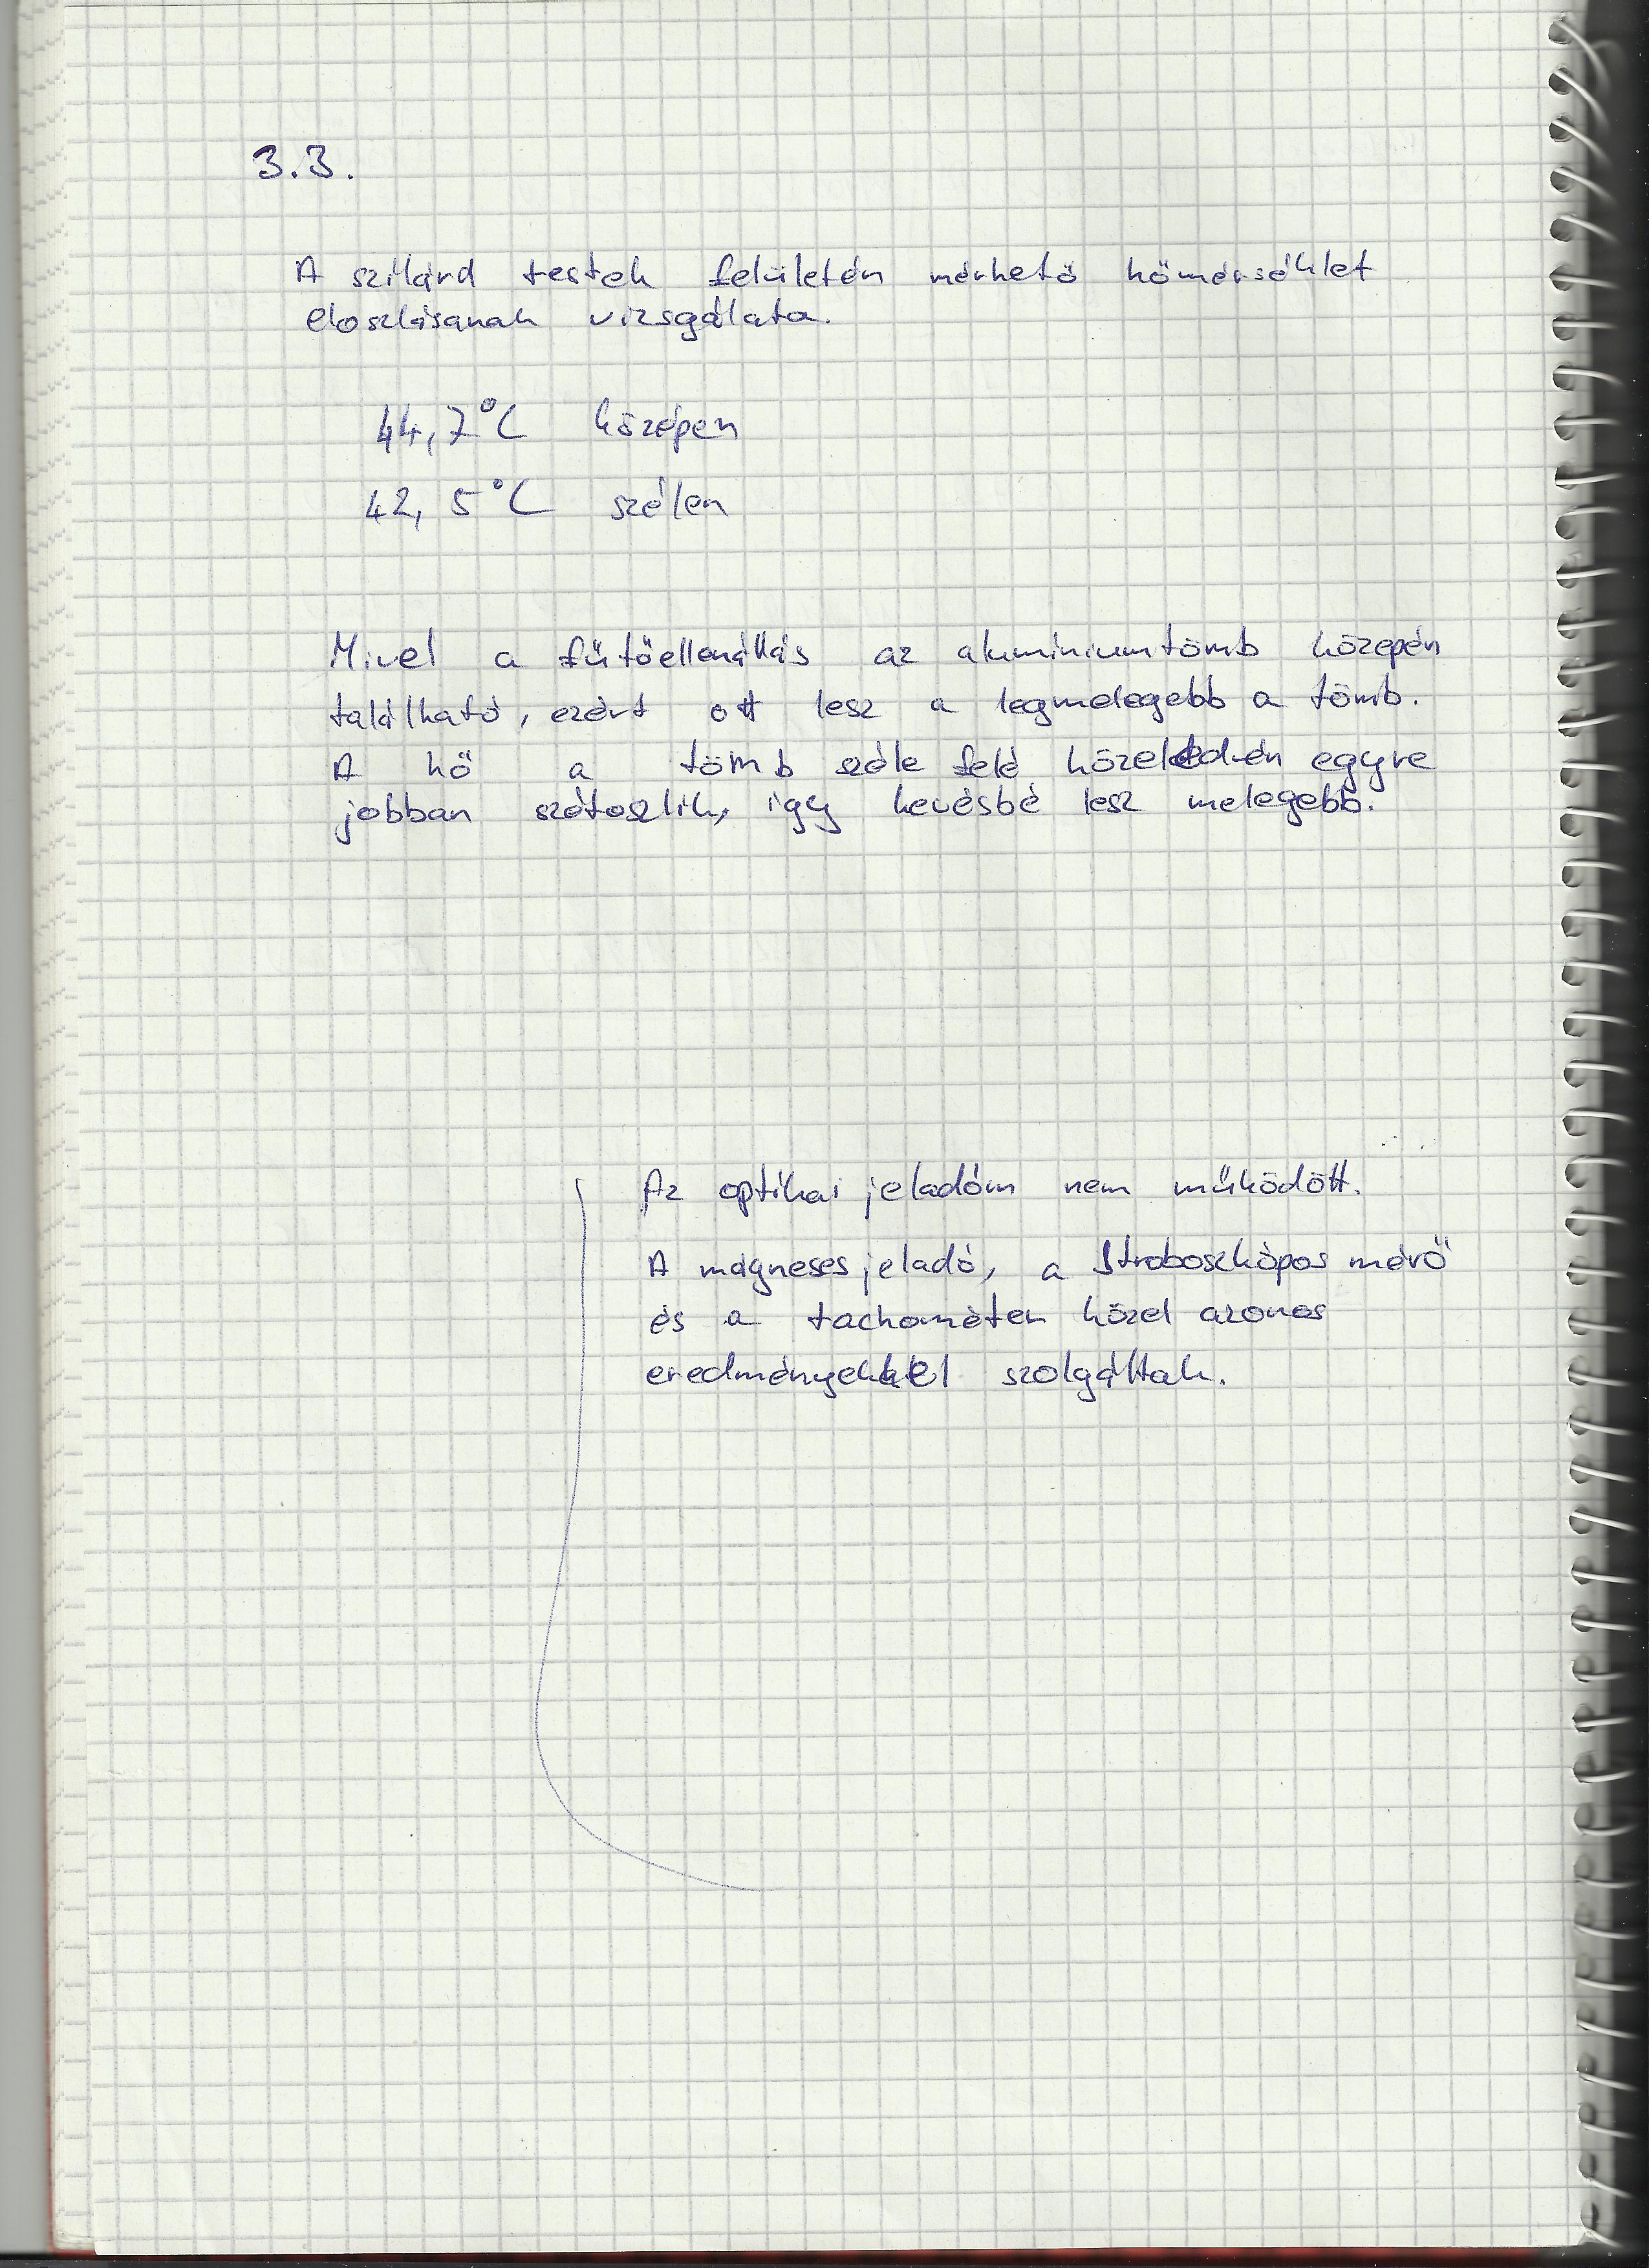 3.3.
A szilárd testek felületén mérhető hőmérséklet
eloszlásának vizsgálata.
44,7°C középen
42,5°C szélen
Mivel a fűtőellenállás az alumíniumtömb közepén
található, ezért ott lesz a legmelegebb a tömb.
A hő a tömb széle felé közeledvén egyre
jobban szétoszlik, így kevésbé lesz melegebb.
Az optikai jeladóm nem működött.
A mágneses jeladó, a Stroboszkópos mérő
és a tachométer közel azonos
eredményekkel szolgáltak.